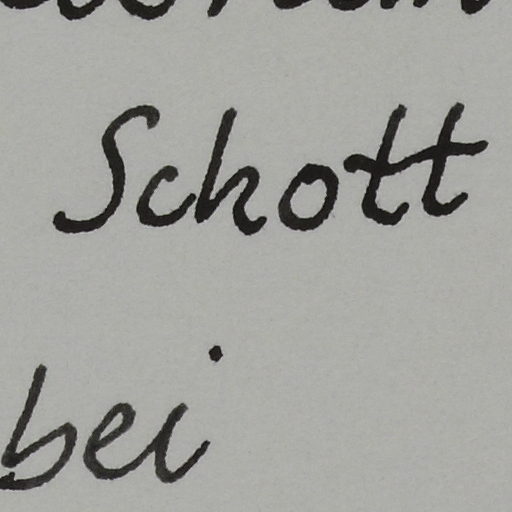 Schott
bei